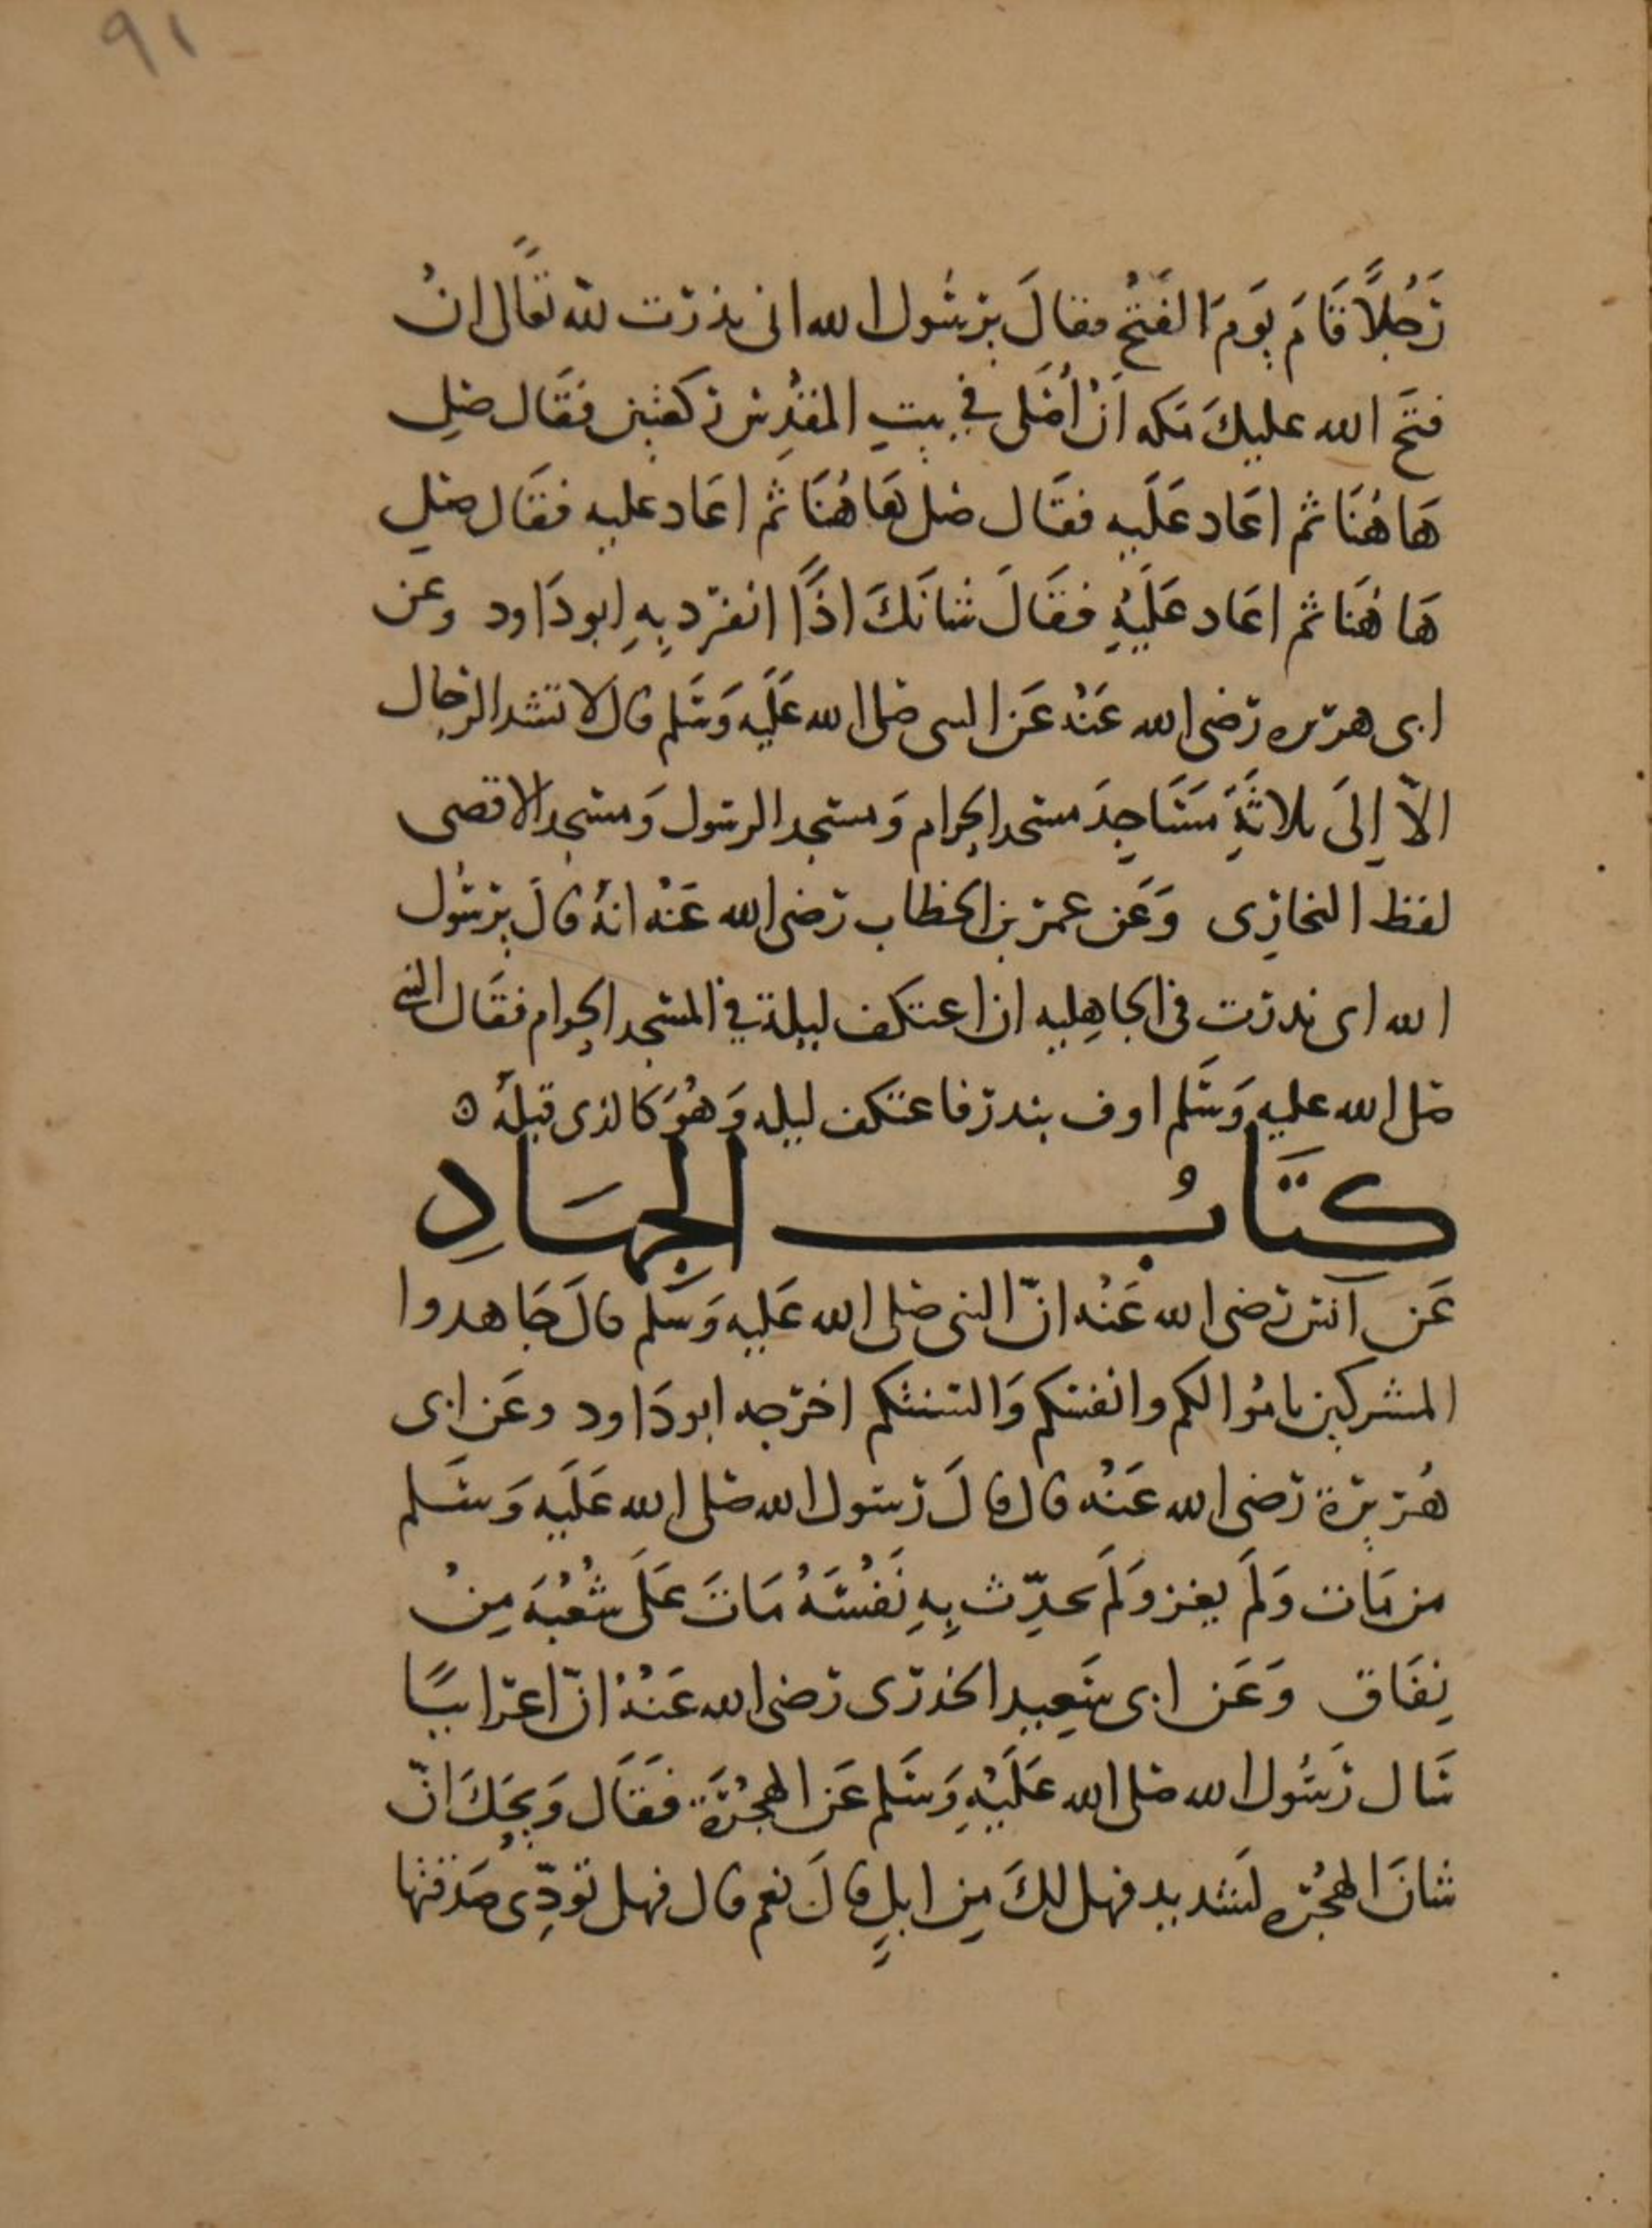 ٩١
رَجُلاً قَامَ يَومَ الفَتْحِ فقالَ يرسُول الله انى نذرت لله تعَالى انْ
فتَح الله عليكَ مَكه اَنْ اُصَلى في بيتِ المقدِس ركعتين فقَال صَلِ
هَاهُنَا ثم اعَاد عَلَيه فقَال صَل هَاهُنَا ثم اعَاد عليه فقَال صَلِ
هَا هُنَا ثم اعَاد عَلَيْهِ فقَالَ شانَكَ اذًا انفرد بِهِ ابو دَاود وعن
ابى هريره رَضى الله عَنْهُ عَن النبى صَلى الله عَلَيه وَسَلم قال لا تشد الرحال
الاّ إلَى ثلاثَةِ مَسَاجِدَ مسجد الحرام وَمسجد الرسول وَمسجد الاقصى
لفظ البخارِى وَعَن عمر بن الخطاب رَضى الله عَنْه انهُ قالَ يرسُول
الله انى نذرت فى الجاهِليه ان اعتكف ليلة في المسجد الحرام فقَال النبى
صَلى الله عليه وَسَلم اوف بنذرك فاعتكف ليله وَهُوَ كالذى قبلهُ ه
كِتَابُ الجِهَادِ
عَن اَنس رَضى الله عَنْه انّ النبى صَلى الله عَليه وَسَلم قالَ جَاهدوا
المشركين بامْوالكم وانفسكم وَالسنتكم اخرَجه ابو دَاود وعَن ابى
هُريرَة رَضى الله عَنْه قال قالَ رَسول الله صَلى الله عَلَيه وَسَلم
من مَات وَلَم يغز وَلَم يحدِّث بِهِ نَفْسَهُ مَاتَ عَلَى شُعْبَه مِنْ
نِفَاق وَعَن ابى سَعِيد الخدرى رَضى الله عَنْهُ انّ اعرَابيًا
سَال رَسُول الله صَلى الله عَلَيْهِ وَسَلم عَن الهِجْرَة فَقَال وَيحَكَ انّ
شانَ الهِجْرَه لَشديد فهل لكَ مِن ابلٍ قالَ نعم قال فهل تودِّى صَدقتها